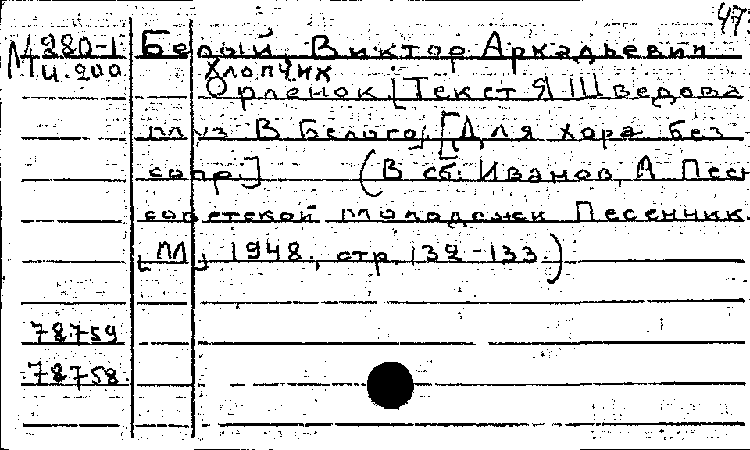 47
М 280-1 Белый, Виктор Аркадьевич
Хлопчик
Орленок [Текст Я Шведова
муз В Белого] [Для хора без
сопр.] (В сб: Иванов, А Песн
советской молодежи Песенник.
[М] 1948., стр. 132-133.)
78759
78758